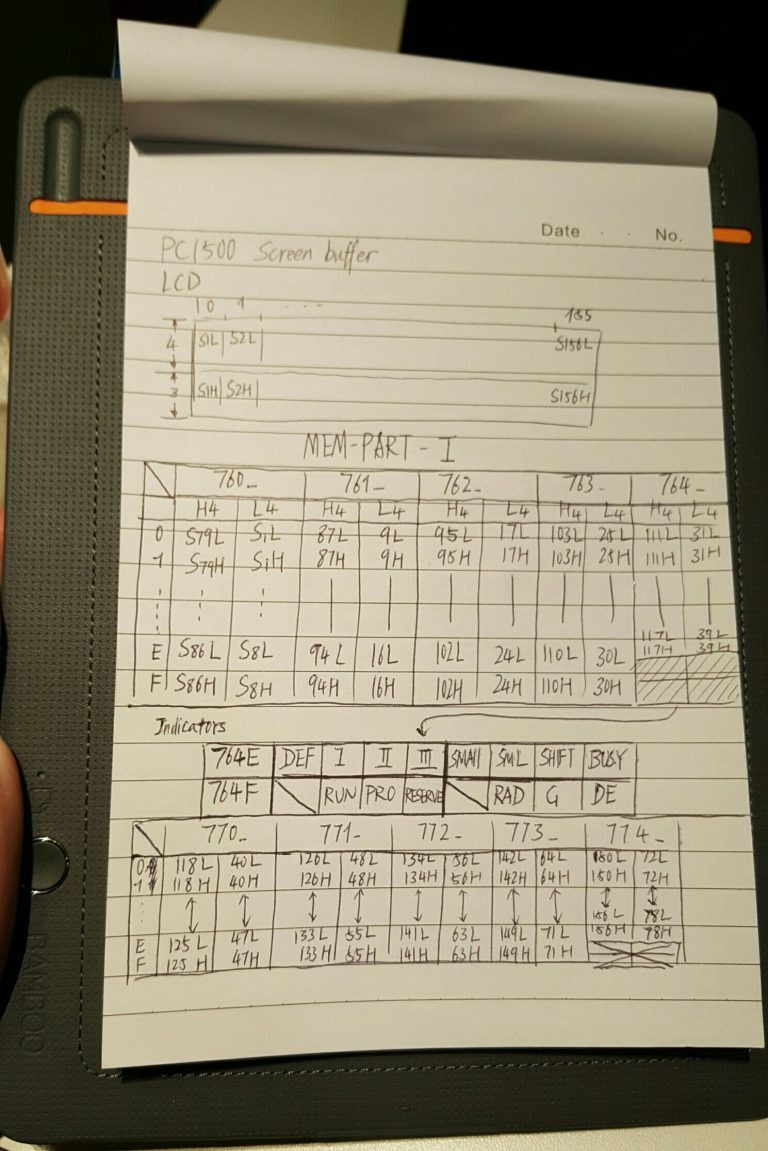 Date . . No.
PC1500 Screen buffer
LCD
0 1 - - - 155
4 S1L S2L S156L
3 S1H S2H S156H
MEM-PART-I
760_ 761_ 762_ 763_ 764_
H4 L4 H4 L4 H4 L4 H4 L4 H4 L4
0 S79L S1L 87L 9L 95L 17L 103L 25L 111L 31L
1 S79H S1H 87H 9H 95H 17H 103H 25H 111H 31H
117L 39L
117H 39H
E S86L S8L 94L 16L 102L 24L 110L 30L
F S86H S8H 94H 16H 102H 24H 110H 30H
Indicators
764E DEF I II III SMAll SML SHIFT BUSY
764F RUN PRO RESERVE RAD G DE
770_ 771_ 772_ 773_ 774_
0 118L 40L 126L 48L 134L 56L 142L 64L 150L 72L
1 118H 40H 126H 48H 134H 56H 142H 64H 150H 72H
156L 78L
156H 78H
E 125L 47L 133L 55L 141L 63L 149L 71L
F 125H 47H 133H 55H 141H 63H 149H 71H
BAMBOO